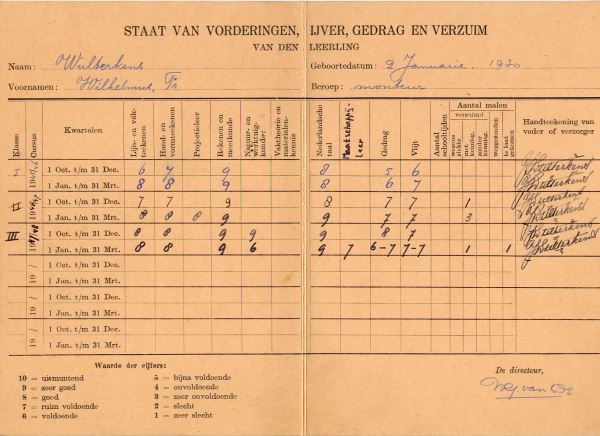 STAAT VAN VORDERINGEN, IJVER, GEDRAG EN VERZUIM
VAN DEN LEERLING
Naam: Wulterkens Geboortedatum: 2 Januarie. 1930
Voornamen: Wilhelmus, Fr Beroep: monteur
Klasse Cursus Kwartalen Lijn- en vak-teekenen Hand- en vormteekenen Projectieleer Rekenen en meetkunde Natuur- en werktuig-kunde Vaktheorie en materialen-kennis Nederlandsche taal Maatschappij-leer Gedrag Vlijt Aantal schooltijden Aantal malen verzuimd wegens ziekte met kennisg. zonder kennisg. weggezonden te laat gekomen Handteekening van vader of verzorger
I 1 Oct. t/m 31 Dec. 6 7 9 8 5 6 Wulterkens
1 Jan. t/m 31 Mrt. 8 8 9 8 6 7 Wulterkens
II 1 Oct. t/m 31 Dec. 7 7 9 8 7 7 1 Wulterkens
1 Jan. t/m 31 Mrt. 8 8 8 9 9 7 7 3 Wulterkens
III 1947/48 1 Oct. t/m 31 Dec. 8 8 9 9 9 8 7 Wulterkens
1 Jan. t/m 31 Mrt. 8 8 9 6 9 7 6-7 7-7 1 1 Wulterkens
19 / 1 Oct. t/m 31 Dec.
1 Jan. t/m 31 Mrt.
19 / 1 Oct. t/m 31 Dec.
1 Jan. t/m 31 Mrt.
19 / 1 Oct. t/m 31 Dec.
1 Jan. t/m 31 Mrt.
Waarde der cijfers:
10 = uitmuntend 5 = bijna voldoende
9 = zeer goed 4 = onvoldoende
8 = goed 3 = zeer onvoldoende
7 = ruim voldoende 2 = slecht
6 = voldoende 1 = zeer slecht
De directeur,
van Os